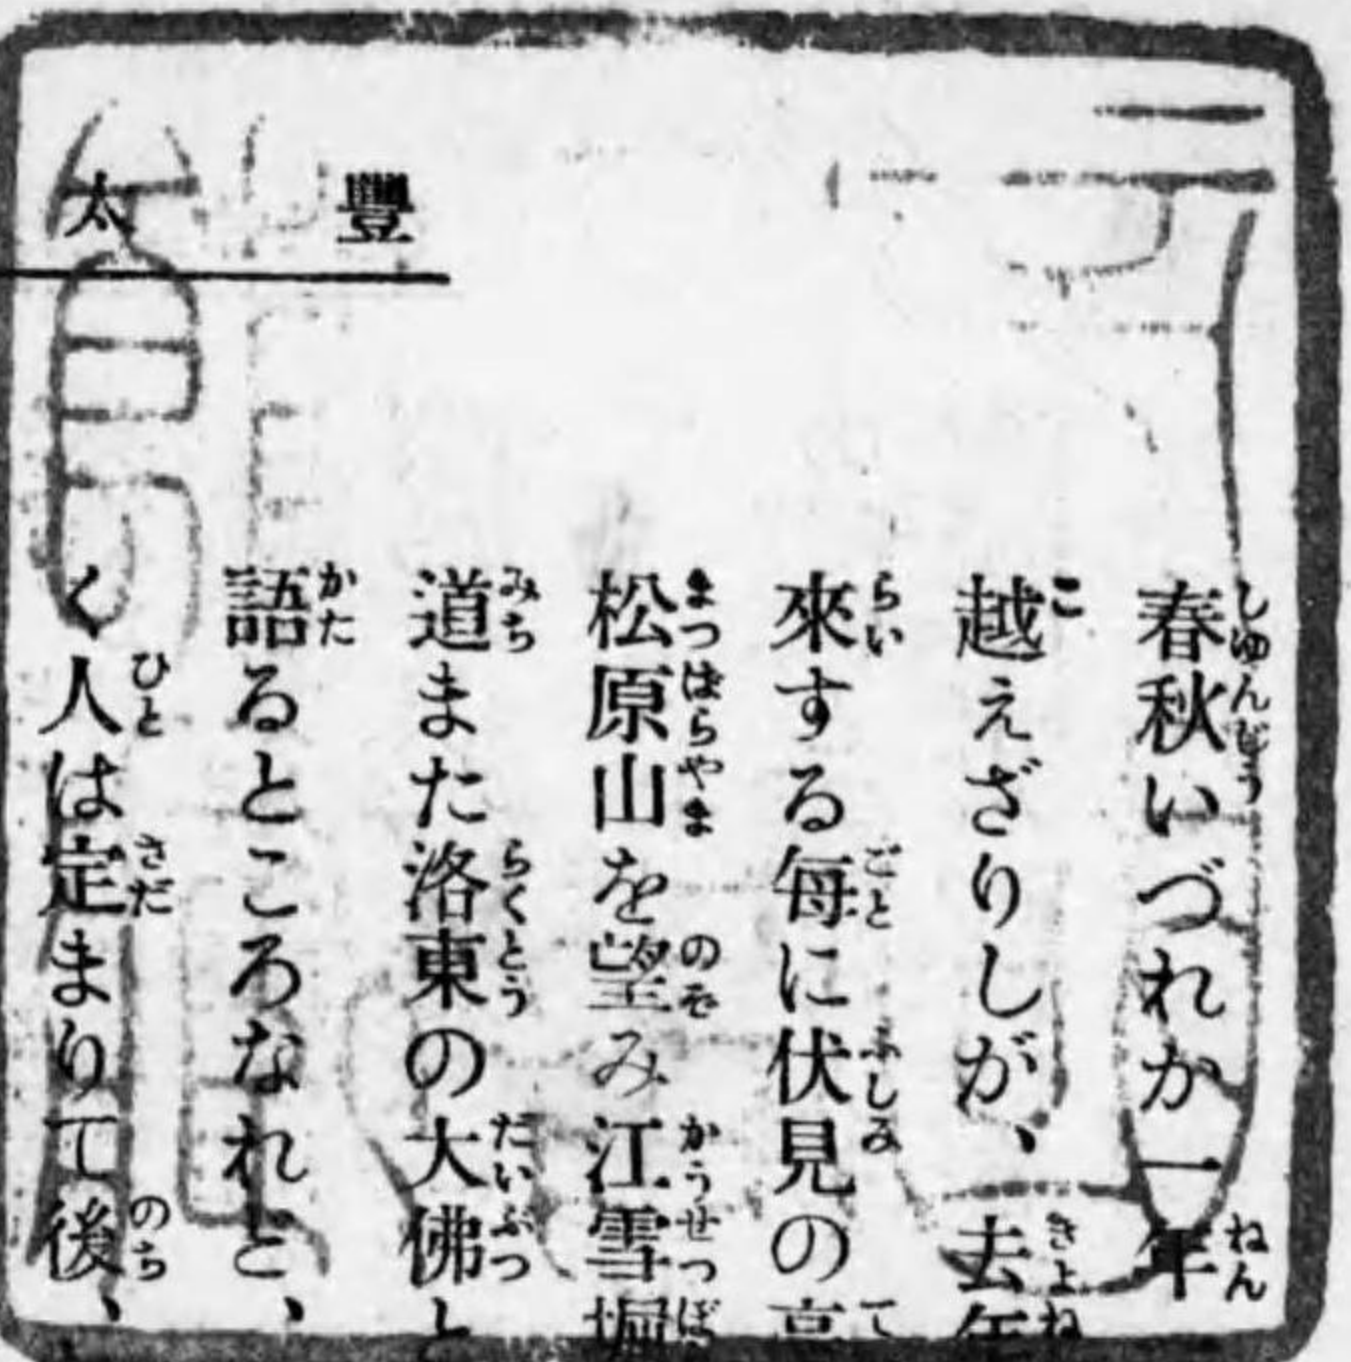 豐
太
春秋いづれか一年
越えざりしが、去年
來する毎に伏見の
松原山を望み江雪堀
道また洛東の大佛と
語るところなれど、
く人は定まりて後、